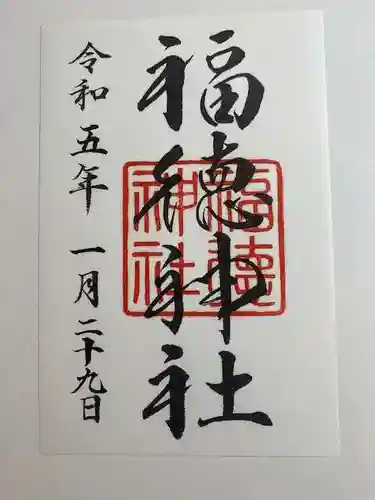 福徳神社
福徳神社
令和五年 一月二十九日